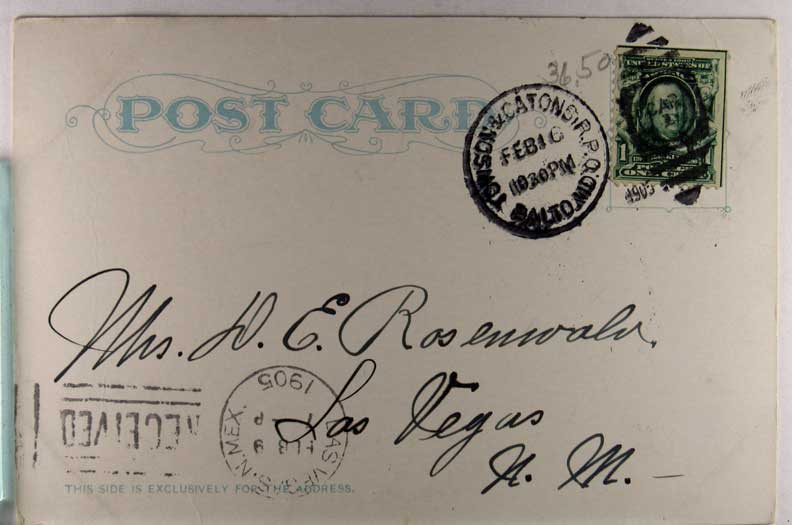 36,50
POST CARD
TOWSON & CATONS. R.P.O.
FEB 16
1030 PM
BALTO. MD.
UNITED STATES OF
1
ONE CENT
Mrs. D. E. Rosenwald.
Las Vegas
N. M. —
RECEIVED
LAS VEGAS, N. MEX.
FEB
1905
THIS SIDE IS EXCLUSIVELY FOR THE ADDRESS.